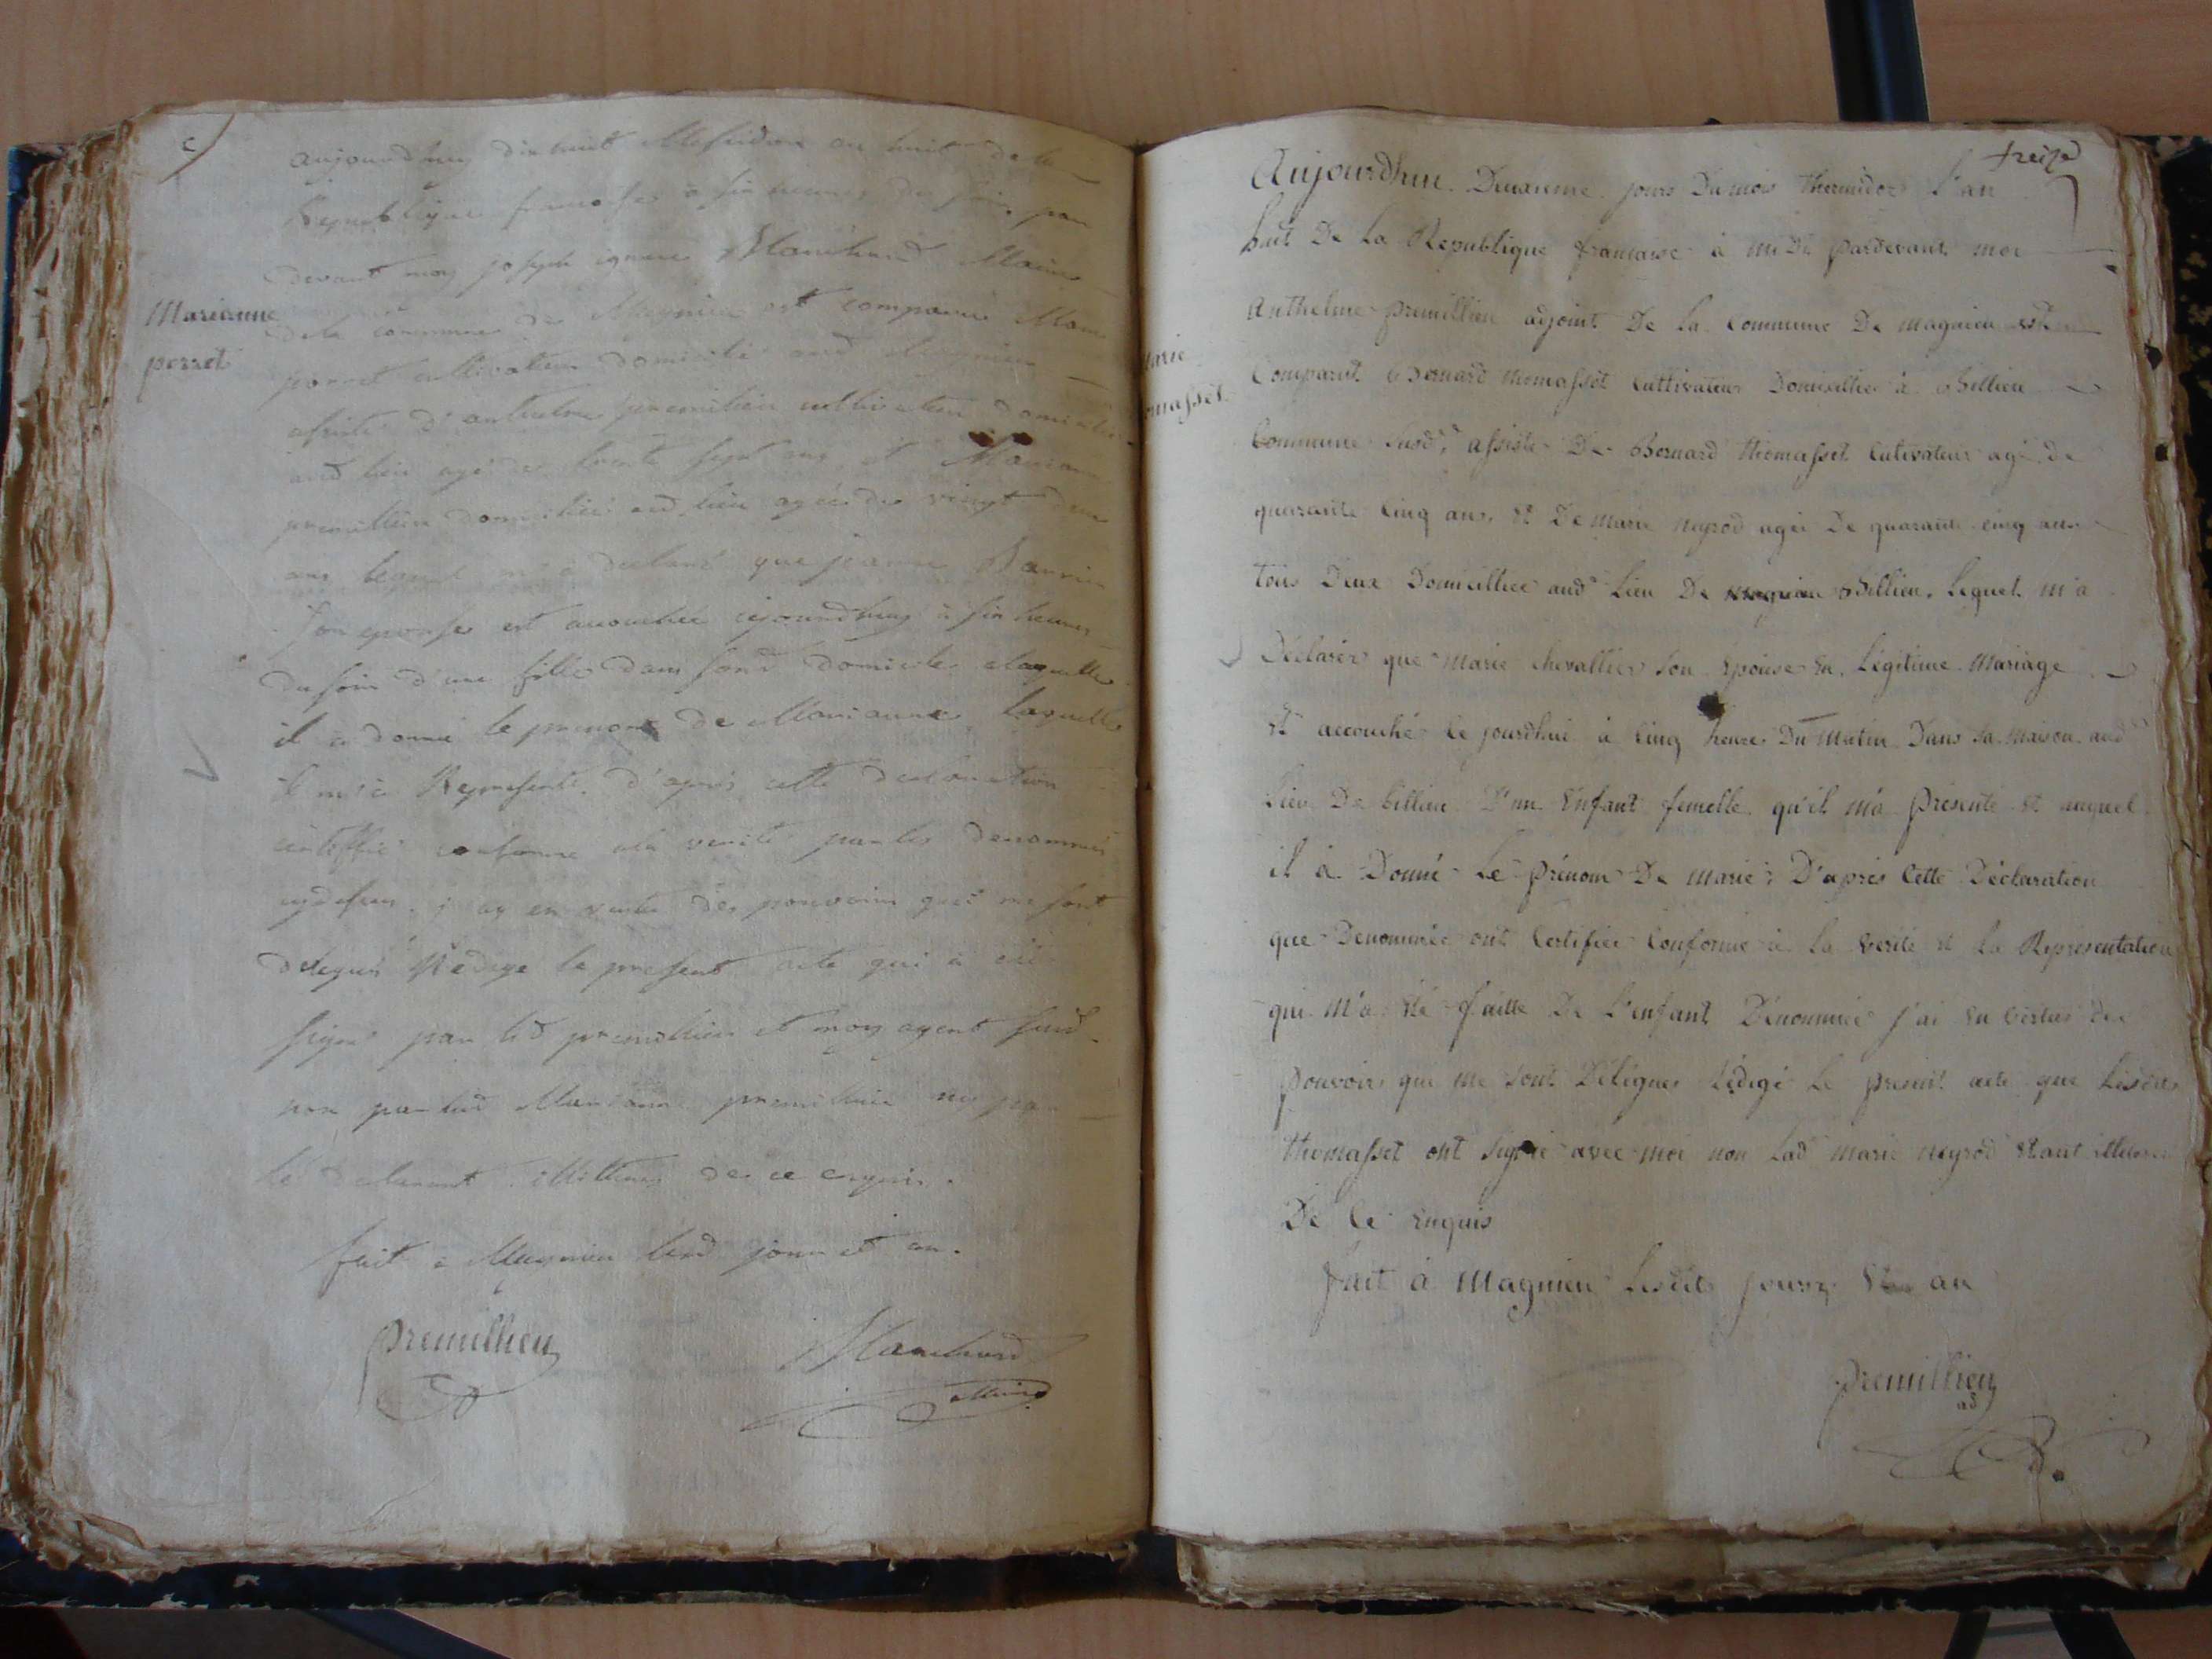 aujourdhuy dix huit Messidor an huit de la
Republique francaise à six heures du soir par
devant moy joseph ignace Blanchard Maire
Marianne
perret
dela commune de Magnieu est comparu
perret cultivateur domicilié aud Magnieu
assisté d'anthelme premillieu cultivateur domicilié
aud lieu agé de trente sept ans et Mariane
premillieu domiciliée aud lieu agée de vingt deux
ans lequel m'a declaré que jeanne
son epouse est accouchée cejourdhuy à six heures
du soir d'une fille dans sond domicile alaquelle
il a donné le prenom de Marianne laquelle
il m'a Représenté. d'après cette declaration
certiffié conforme ala verité par les denommés
cydessus. j'ay en vertu des pouvoirs qui me sont
delegués Rédigé le present acte qui à été
signé par led premillieu et moy agent susd
non par lad Mariane premillieu ny par
le declarant illitterés de ce enquis.
fait à Magnieu lesd jour et an.
premillieu
Blanchard
Maire
treize
Aujourdhui Deuxieme jours Du mois thermidor l'an
huit De La Republique francaise à midi pardevant moi
Anthelme premillieu adjoint De La Commune De magnieu est
arie
omasset
Comparut Bernard thomasset Cultivateur Domicillier à Billieu
Commune susd.e, assisté De Bernard thomasset Cutivateur agé de
quarante Cinq ans, et De marie neyrod agée De quarante cinq ans
tous Deux Domicillier aud Lieu De Billieu, Lequel m'a
Déclarer que marie Chevallier son Épouse en Légitime Mariage
et accouché Ce jourdhui à Cinq heures Du Matin Dans sa Maison aud
Lieu De billieu D'un Enfant femelle qu'il m'a Présenté et auquel
il à Donné Le Prénom De Marie; D'après Cette Déclaration
que Denommée ont Certifier Conforme à La Verité et La Représentation
qui M'a été faitte De L'enfant Dénommée j'ai En Vertus des
pouvoirs qui me sont Délégues Rédigé Le present acte que Lesdits
thomasset ont signé avec moi non Lad marie neyrod Étant
De Ce Enquis
fait à Magnieu Lesdits jours Et an
premillieu
ad